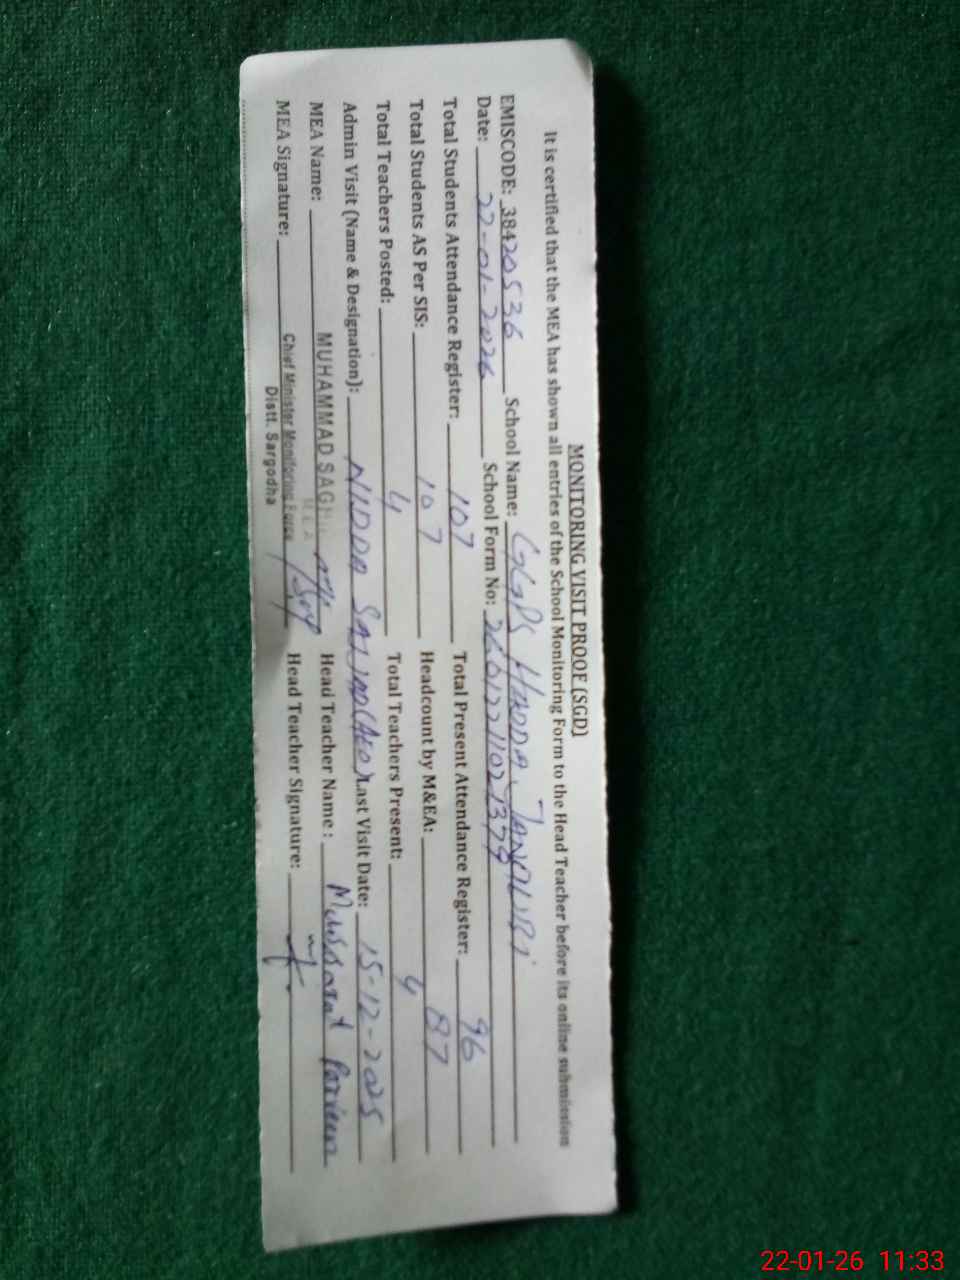 MONITORING VISIT PROOF (SGD)
It is certified that the MEA has shown all entries of the School Monitoring Form to the Head Teacher before its online submission
EMISCODE: 38420536 School Name: GGPS HADDA
Date: 22-01-2026 School Form No:
Total Students Attendance Register: 107 Total Present Attendance Register: 96
Total Students AS Per SIS: 107 Headcount by M&EA: 87
Total Teachers Posted: 4 Total Teachers Present: 4
Admin Visit (Name & Designation): NIDDA SAJJAD (AEO) Last Visit Date: 15-12-2025
MEA Name: MUHAMMAD Head Teacher Name : Mussarat Parveen
MEA
MEA Signature: Chief Minister Monitoring Force Head Teacher Signature:
Distt. Sargodha
22-01-26 11:33